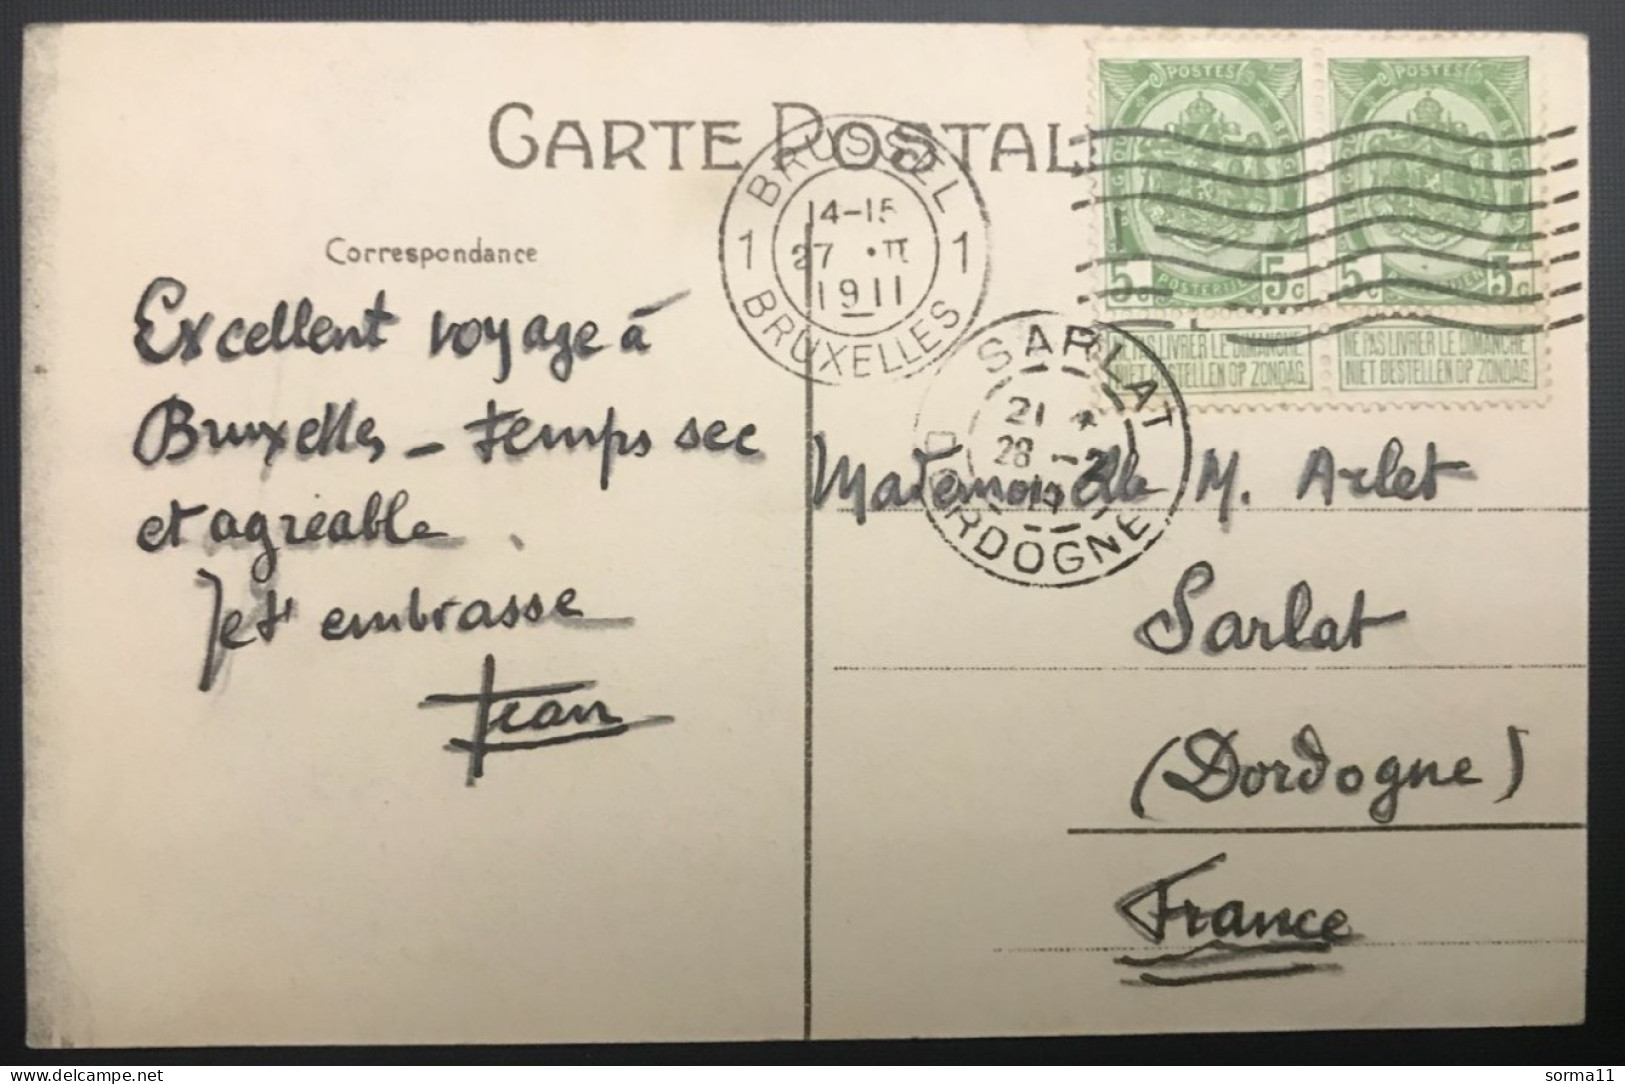 CARTE POSTAL
Correspondance
Excellent voyage à
Bruxelles - temps sec
et agréable
Je t'embrasse
Jean
BRUSSEL
1 1
14-15
27 • II
1911
BRUXELLES
SARLAT
21 *
28 - 2
DORDOGNE
POSTES
5c 5c
POSTERIJEN
NE PAS LIVRER LE DIMANCHE
NIET BESTELLEN OP ZONDAG
POSTES
5c 5c
NE PAS LIVRER LE DIMANCHE
NIET BESTELLEN OP ZONDAG
Mademoiselle M. Arlet
Sarlat
(Dordogne)
France
sorma11